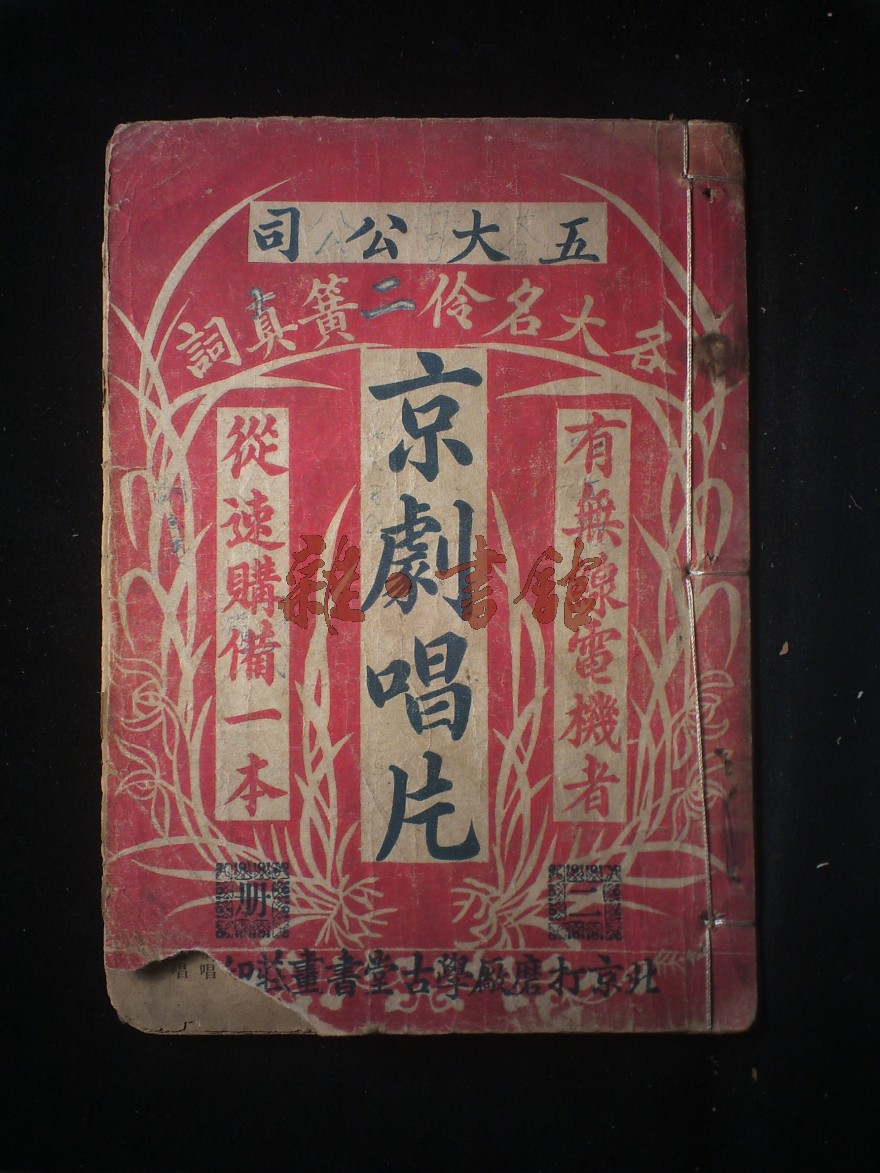 五大公司
各大名伶二簧真詞
京劇唱片
有無線電機者
從速購備一本
二册
北京打磨厰學古堂書畫莊印
唱
唱
雜·書館